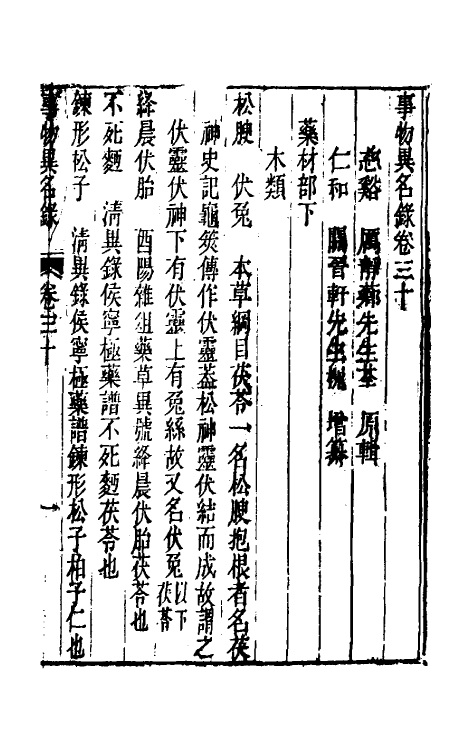 事物異名錄卷三十
慈谿　厲靜薌先生荃　原輯
仁和　關晉軒先生槐　增纂
藥材部下
木類
松腴　伏兔　本草綱目茯苓一名松腴抱根者名茯
神史記龜筴傳作伏靈葢松神靈伏結而成故謂之
伏靈伏神下有伏靈上有兔絲故又名伏兔以下茯苓
絳晨伏胎　酉陽雜俎藥草異號絳晨伏胎茯苓也
不死麪　清異錄侯寧極藥譜不死麪茯苓也
鍊形松子　清異錄侯寧極藥譜鍊形松子柏子仁也
事物異名錄　卷三十　一